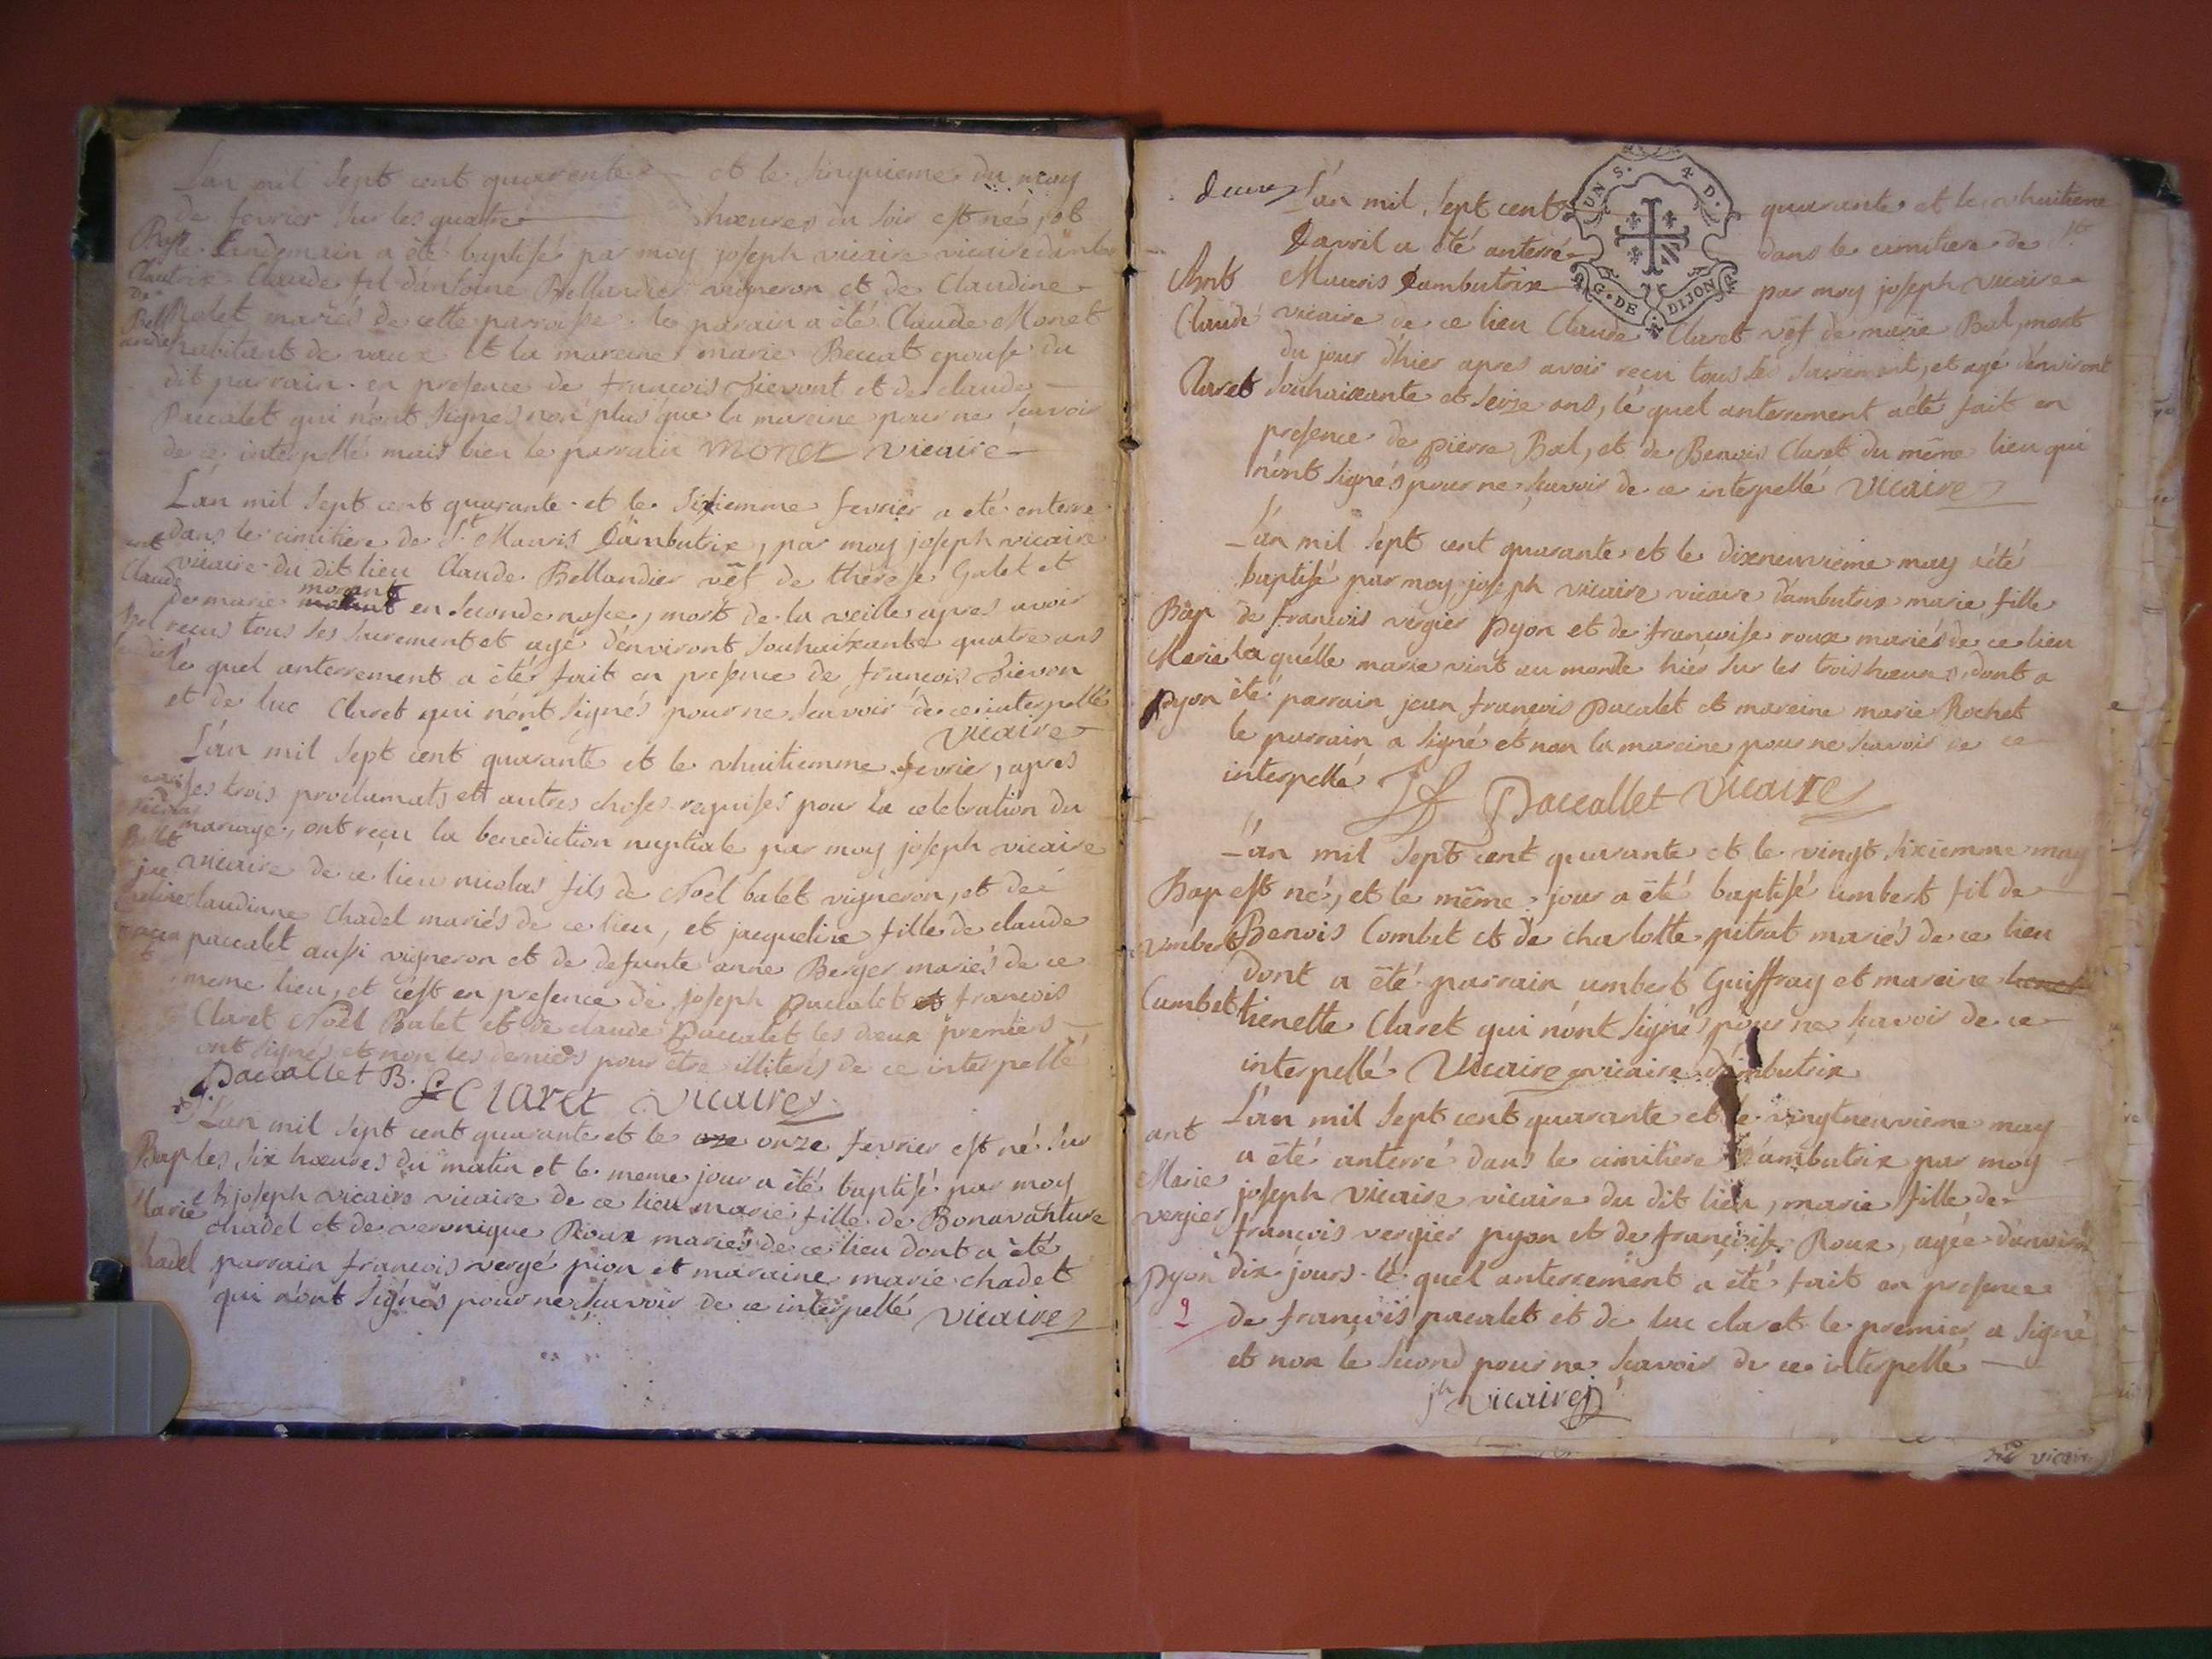 L'an mil sept cent quarente et le sinquieme du moy
de fevrier sur les quatre hœures du soir est né, et
Bapt. Landemain a été baptisé par moy joseph vicaire vicaire damb
Claude fil d'antoine Bellandier vigneron et de Claudine
Bell Galet mariés de cette parroisse. le parain a été Claude Monet
habitant de vaux et la mareine marie Beccat epouse du
dit parrain. en presence de francois Sievont et de claude
Paccalet qui n'ont signés non plus que la mareine pour ne scavoir
de ce interpellé mais bien le parrain Monet vicaire
L'an mil sept cent quarante et le sixiemme fevrier a été enterre
dans le cimitiere de St Mauris Dambutrix, par moy joseph vicaire
ent vicaire du dit lieu Claude Bellandier vêf de therese Galet et
Claude de marie morant en seconde nosse, mort de la veille apres avoir
Bel recus tous ses sacrement et agé d'environt souhaixante quatre ans
le quel anterrement a été fait en presence de francois Sievon
et de luc Claret qui n'ont signés pour ne scavoir de ce interpellé
vicaire
L'an mil sept cent quarante et le vhuitiemme fevrier, apres
les trois proclamats et autres choses requises pour la celebration du
mariage, ont reçu la benediction nuptiale par moy joseph vicaire
vicaire de ce lieu nicolas fils de Noel balet vigneron, et de
claudinne Chadel mariés de ce lieu, et jacqueline fille de claude
paccalet aussi vigneron et de defunte anne Berger mariés de ce
meme lieu, et c'est en presence de joseph paccalet et francois
Claret Noel Balet et de claude Paccalet les deux premiers
ont signés et non les derniers pour être illiterés de ce interpellé
Paccallet B. f Claret vicaire
L'an mil sept cent quarante et le onze fevrier est né sur
Bap les six hœures du matin et le meme jour a été baptisé par moy
Marie joseph vicaire vicaire de ce lieu marie fille de Bonavanture
chadel et de veronique Rioux mariés de ce lieu dont a été
hadel parrain francois vergé pion et maraine marie chadet
qui n'ont signés pour ne scavoir de ce interpellé vicaire
deux L'an mil sept cent quarante et le vhuitieme
D'avril a été anterré dans le cimitiere de St
Ant Mauris Dambutrix par moy joseph vicaire
Claude vicaire de ce lieu Claude Claret vêf de marie Bal, mort
du jour d'hier apres avoir recu tous ses sacrement, et agé d'environt
Claret souhaixante et seize ans, le quel anterrement a été fait en
presence de pierre Bal, et de Benois Claret du même lieu qui
n'ont signés pour ne scavoir de ce interpellé vicaire
L'an mil sept cent quarante et le dixneuvieme may a été
baptisé par moy joseph vicaire vicaire d'ambutrix marie fille
Bap de francois vergier pyon et de francoise roux mariés de ce lieu
Marie la quelle marie vint au monde hier sur les trois hœures, dont a
pyon été parrain jean francois Pacalet et mareine marie Rochet
le parrain a signé et non la mareine pour ne scavoir de ce
interpellé Paccallet Vicaire
L'an mil sept cent quarante et le vingt sixiemme may
Bap est né, et le même jour a été baptisé umbert fil de
Umbert Benois Combet et de charlotte pitrat mariés de ce lieu
dont a été parrain umbert Guiffray et mareine
Cumbet tienette Claret qui n'ont signé pour ne scavoir de ce
interpellé Vicaire vicaire d'ambutrix
L'an mil sept cent quarante et le vingtneuvieme may
ant a été anterré dans le cimitiere d'ambutrix par moy
Marie joseph vicaire vicaire du dit lieu, marie fille de
vergier francois vergier pyon et de françoise Roux, agée d'environ
pyon dix jours. le quel anterrement a été fait en presence
2 de françois pacalet et de luc claret le premier a signé
et non le second pour ne scavoir de ce interpellé
jh vicaire
UN S. 4. D.
G. DE DIJON